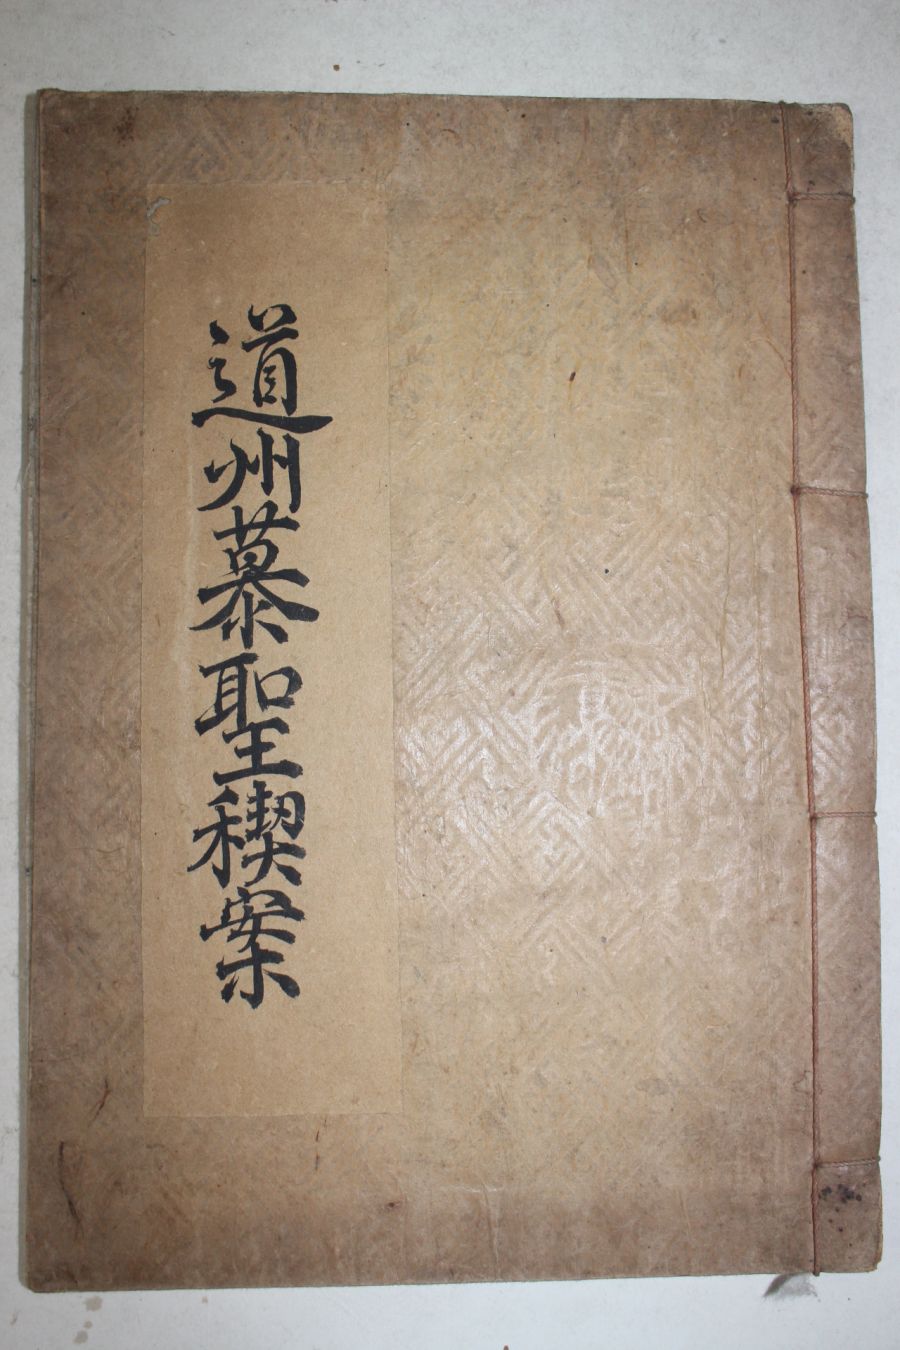 道州慕聖稧案